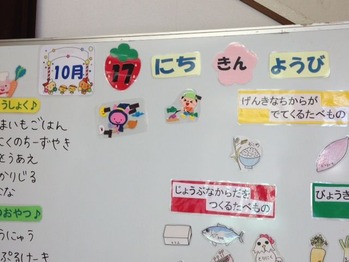 10月 17 にち きん ようび
うしょく♪
まいもごはん
にくのちーずやき
とうあえ
かりじる
な
のおやつ♪
うにゅう
ぷるけーき
げんきなちからが
でてくるたべもの
じょうぶなからだを
つくるたべもの
びょうき